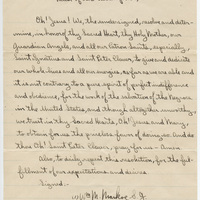 Oh! Jesus! We, the undersigned, resolve and deter-
mine, in honor of Thy Sacred Heart, Thy Holy Mother, our
Guardian Angels, and all our Patron Saints, especially
Saint Ignatius and Saint Peter Claver, to give and dedicate
our whole lives and all our energies, as far as we are able and
it is not contrary to a pure spirit of perfect indifference
and obedience, for the work of the salvation of the Negroes
in the United States; and though altogether unworthy,
we trust in Thy Sacred Heart, O Jesus, and Mary,
to obtain for us the priceless favor of doing so. And do
thou Oh! Saint Peter Claver, pray for us - Amen
Also, to daily repeat this resolution, for the ful-
fillment of our expectations and desires
Signed -
Wm M. Markoe S.J.